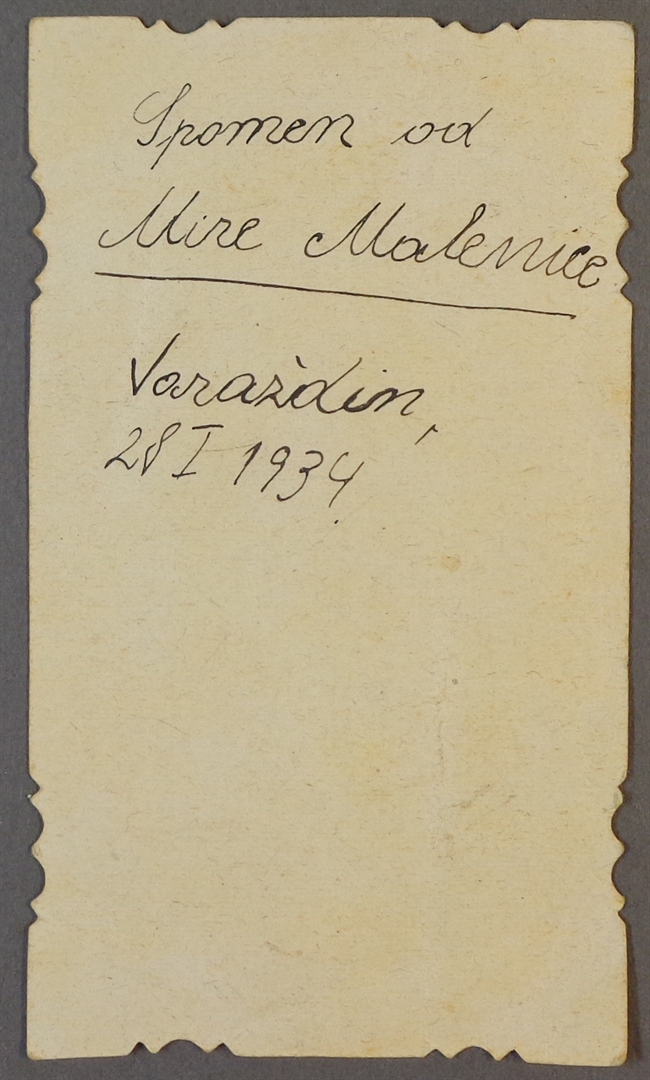 Spomen od
Mire Malenice
Varaždin,
28 I 1934